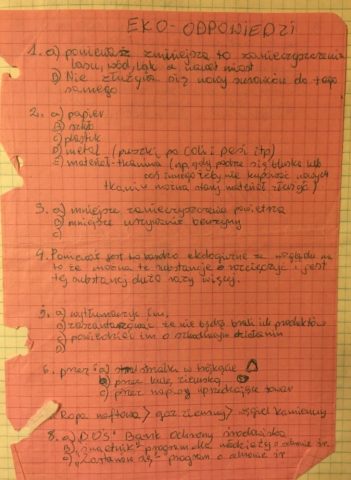 EKO-ODPOWIEDZI
1. a) ponieważ zmniejsza to zanieczyszczenia
lasu, wód, łąk a nawet miast
b) Nie zużywa się nowy surowców do tego
samego
2. a) papier
b) szkło
c) plastik
d) metal (puszki po coli i pepsi itp)
e) materiał-tkanina (np. gdy podrze się bluzka lub
coś innego żeby nie kupować nowych
tkanin można stary materiał
3. a) mniejsze zanieczyszczenie powietrza
b) mniejsze benzyny
c)
4. Ponieważ jest to bardzo ekologiczne ze względu na
to że można te substancje rozcieńczyć i jest
tej substancji dużo razy więcej.
5. a) wytłumaczyć im,
b) że nie będę brał ich produktów
c) powiedzieć im o szkodliwym działaniu
6. przez: a) znaczki w trójkącie
b) przez
c) przez napisy uprzedzające
Ropa naftowa > gaz ziemny > węgiel kamienny
8. a) BOŚ" Bank Ochrony Środowiska
b) program dla młodzieży o ochronie śr.
c) "Zastanów się" - program o ochronie śr.